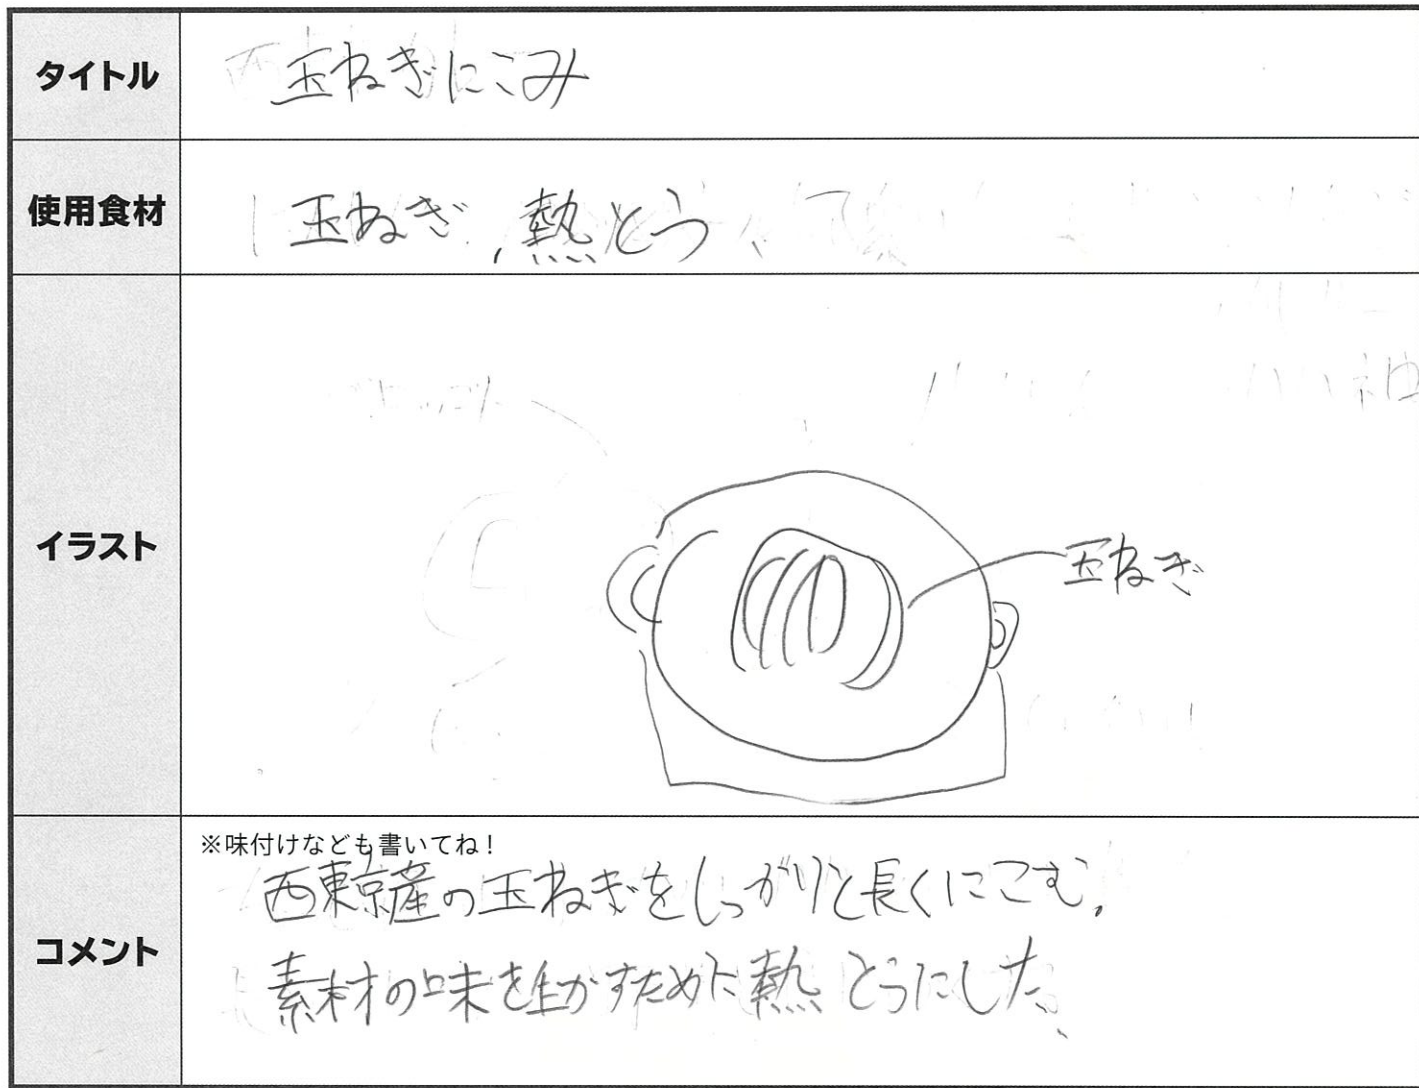 タイトル
玉ねぎにこみ
使用食材
玉ねぎ、熱とう
イラスト
玉ねぎ
コメント
※味付けなども書いてね！
西東京産の玉ねぎをしっかりと長くにこむ。
素材の味を生かすために熱とうにした。